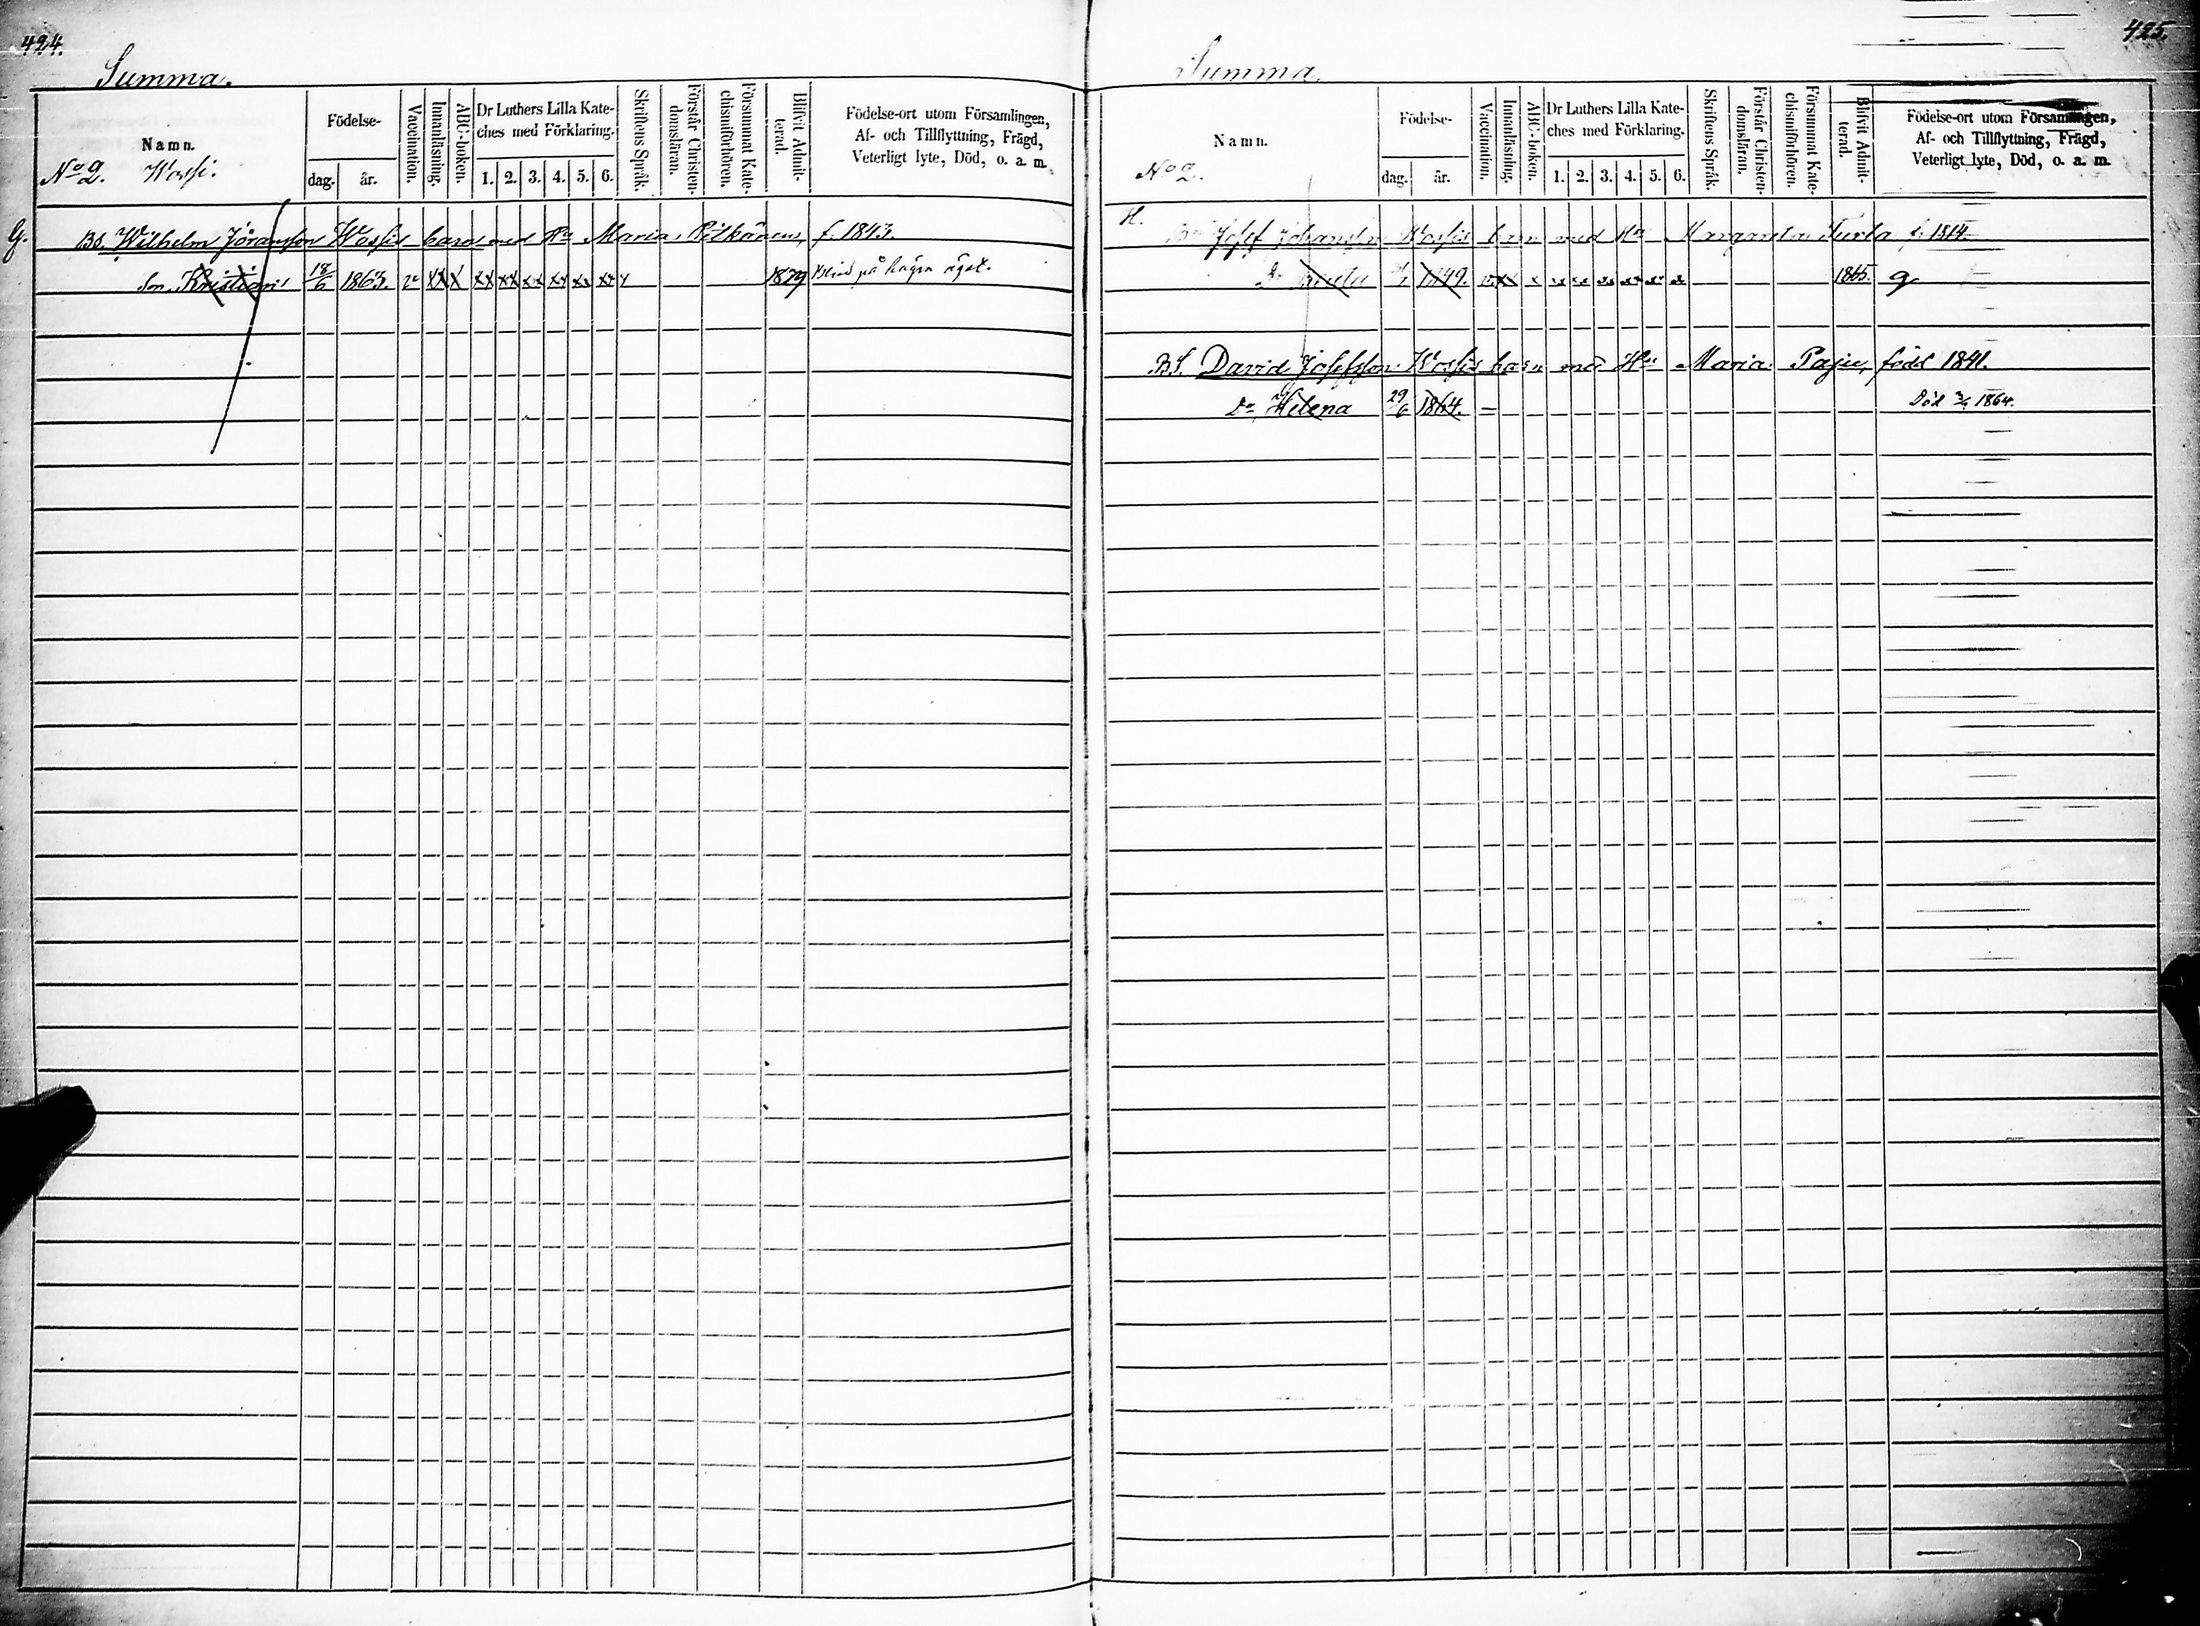 424.
Summa.
Namn.
No 2. Wossi.
Födelse-
dag. år.
Vaccination.
Innanläsning.
ABC-boken.
Dr Luthers Lilla Kate-
ches med Förklaring.
1. 2. 3. 4. 5. 6.
Skriftens Språk.
Förstår Christen-
domsläran.
Försummat Kate-
chismiförhören.
Blifvit Admit-
terad.
Födelse-ort utom Församlingen,
Af- och Tillflyttning, Frägd,
Veterligt lyte, Död, o. a. m.
G. Bs. Wilhelm Jöransson Wossis barn med Hu Maria f. 1843.
Son Kristian 18/6 1863. v xx x xx xx xx xx xx xx x 1879 Blind på högra ögat.
425.
Summa.
Namn.
No 2.
Födelse-
dag. år.
Vaccination.
Innanläsning.
ABC-boken.
Dr Luthers Lilla Kate-
ches med Förklaring.
1. 2. 3. 4. 5. 6.
Skriftens Språk.
Förstår Christen-
domsläran.
Försummat Kate-
chismiförhören.
Blifvit Admit-
terad.
Födelse-ort utom Församlingen,
Af- och Tillflyttning, Frägd,
Veterligt lyte, Död, o. a. m.
H. Josef Johansson Wossis barn med Hu Margareta Turta f. 1814.
Dr 1849. 1865. g.
BS. David Josefsson Wossis barn med Hu Maria Paju, född 1841.
Dr Helena 29/6 1864. – Död 1864.